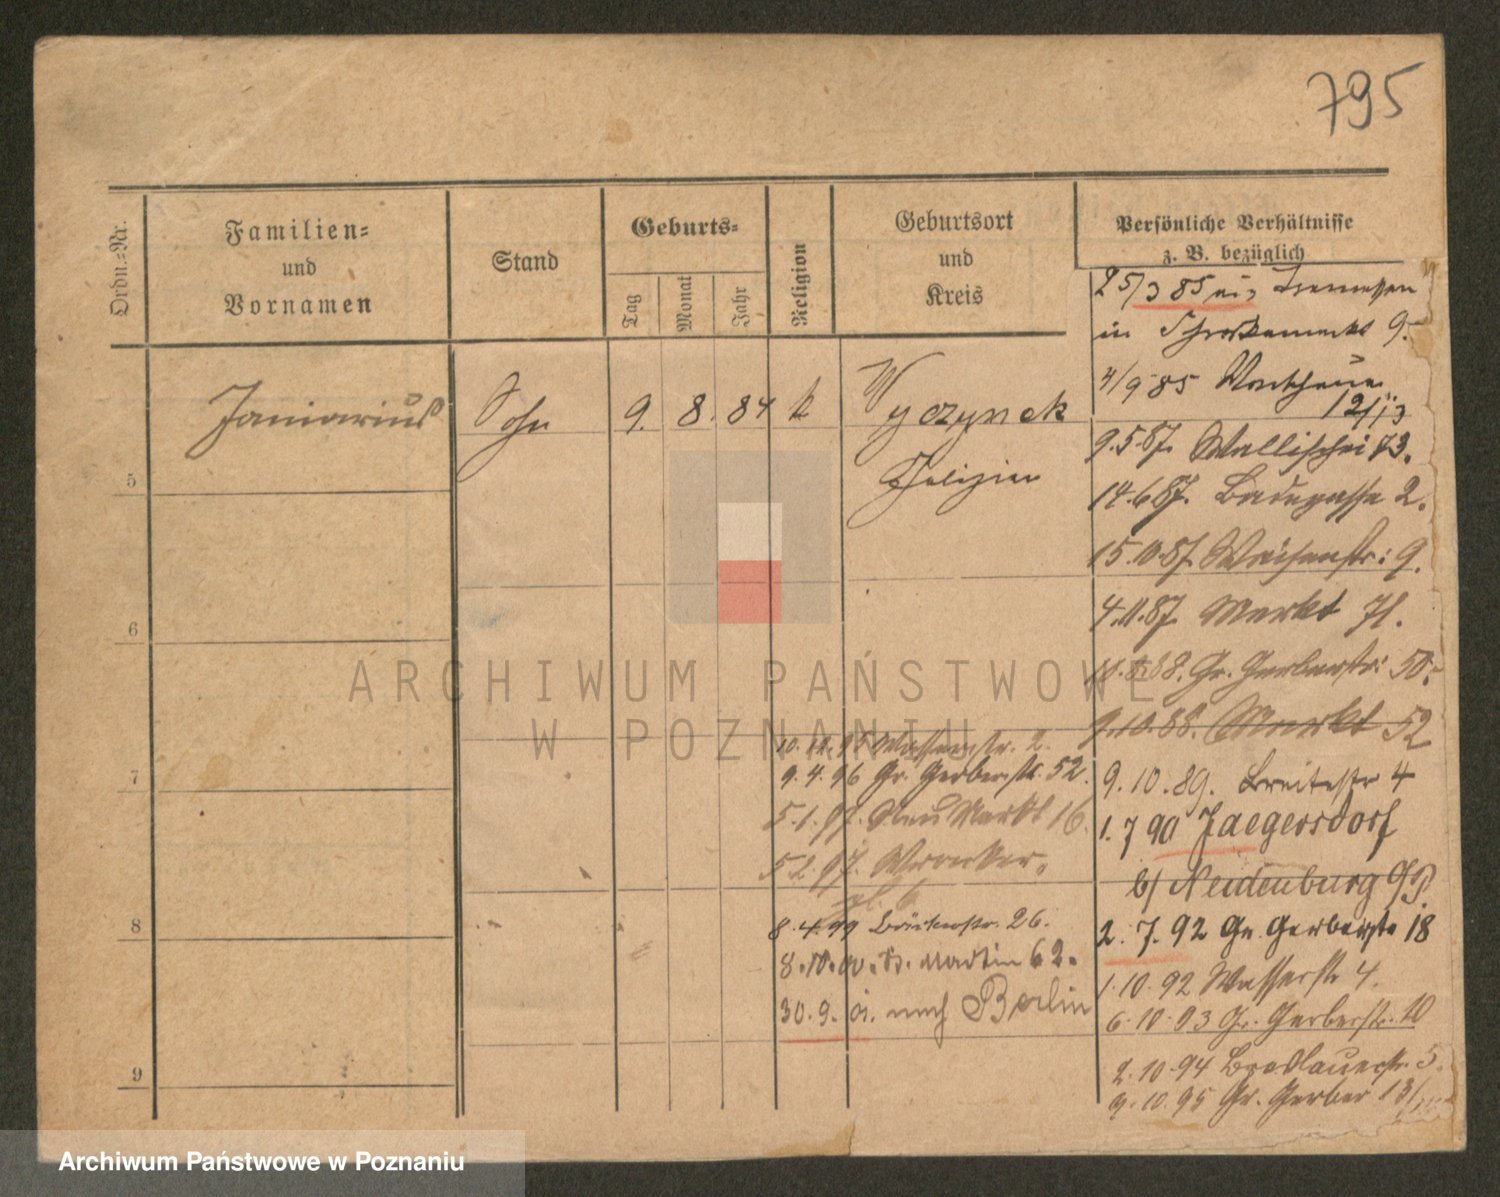 795
Ordn.-Nr.
Familien-
und
Vornamen
Stand
Geburts-
Tag
Monat
Jahr
Religion
Geburtsort
und
Kreis
Persönliche Verhältnisse
z. B. bezüglich
25/3 85 aus Tremessen
in 9.
4/9 85
12/13
Januarius Sohn 9. 8. 84 k Wyczynek
Galizien
9.5.87. Wallischei 73.
14.6.87. Badegasse 2.
15.10.87. Waisenstr: 9.
4.11.87. Markt 71.
88. Gr. Gerberstr: 50.
9.10.88. Markt 52
9.10.89. Breitestr 4
1.7 90 Jaegersdorf
b/ Neidenburg O/P.
2.7.92 Gr. Gerberstr 18
1.10.92 Wasserstr 4.
6.10.93 Gr. Gerberstr. 10
2.10.94 Breslauerstr. 5
9.10.95 Gr. Gerber 13/
95 Wasserstr. 2.
9.4.96 Gr. Gerberstr. 52.
5.1.97. Neu Markt 16.
5.2.97. Wronker.
pl. 6
8.4.99 Bäckerstr. 26.
8.10.00. St. Martin 62.
30.9. 01. nach Berlin
5
6
7
8
9
ARCHIWUM PAŃSTWOWE
W POZNANIU
Archiwum Państwowe w Poznaniu